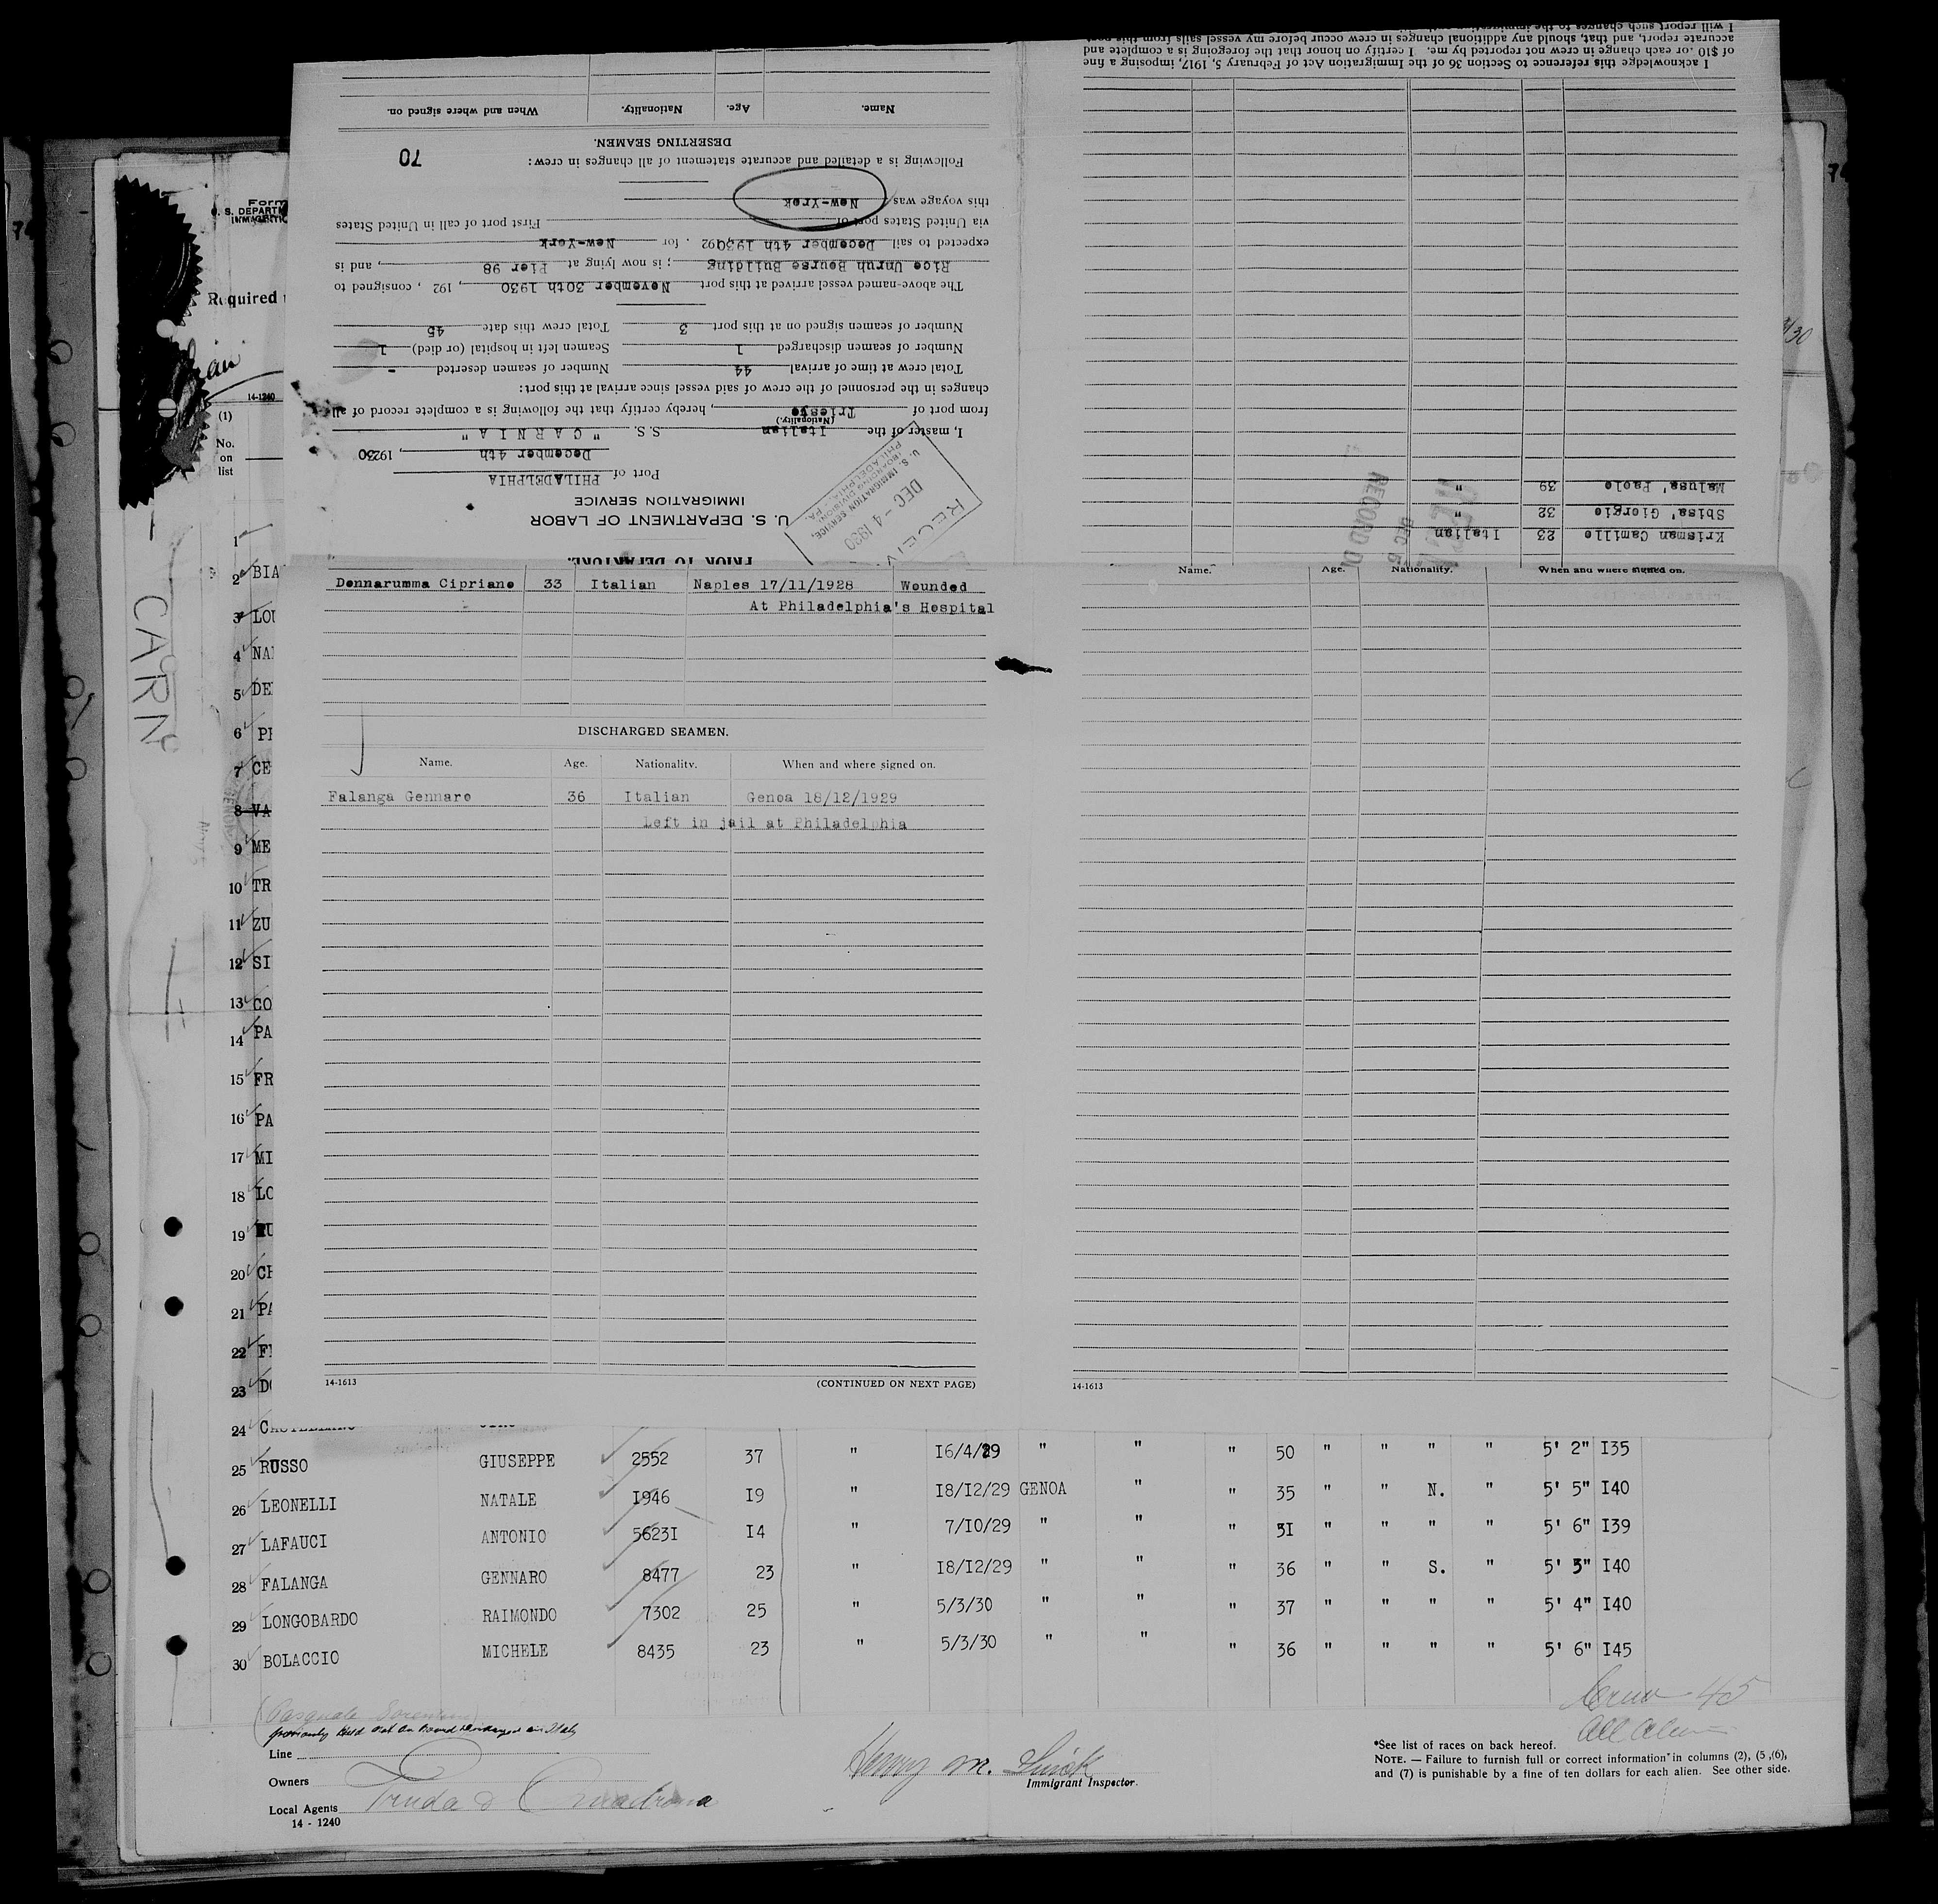 PRIOR TO DEPARTURE.
U. S. DEPARTMENT OF LABOR
IMMIGRATION SERVICE
Port of PHILADELPHIA
December 4th, 19230
I, master of the Italian S.S. " C A R N I A "
(Nationality.)
from port of Trieste, hereby certify that the following is a complete record of all
changes in the personnel of the crew of said vessel since arrival at this port:
Total crew at time of arrival 44 Number of seamen deserted -
Number of seamen discharged 1 Seamen left in hospital (or died) 1
Number of seamen signed on at this port 3 Total crew this date 45
The above-named vessel arrived at this port November 30th 1930, 192 , consigned to
Rice Unruh Bourse Building; is now lying at Pier 98, and is
expected to sail December 4th 1930, 192 . for New-York
via United States port of First port of call in United States
this voyage was New-Yrok
Following is a detailed and accurate statement of all changes in crew: 70
DESERTING SEAMEN.
Name. Age. Nationality. When and where signed on.
RECEIV
DEC - 4 1930
U. S. IMMIGRATION SERVICE,
PHILADELPHIA, PA.
Krisman Camillo 23 Italian
Sbisa' Giorgio 32 "
Malusa' Paolo 39 "
RECORD DI
DEC 5
I acknowledge this reference to Section 36 of the Immigration Act of February 5, 1917, imposing a fine
of $10 for each change in crew not reported by me. I certify on honor that the foregoing is a complete and
accurate report, and that, should any additional changes in crew occur before my vessel sails from this port
I will report such changes to the immigration
Dennarumma Cipriano 33 Italian Naples 17/11/1928 Wounded
At Philadelphia's Hospital
DISCHARGED SEAMEN.
Name. Age. Nationality. When and where signed on.
Falanga Gennaro 36 Italian Genoa 18/12/1929
Left in jail at Philadelphia
14-1613 (CONTINUED ON NEXT PAGE)
Name. Age. Nationality. When and where signed on.
14-1613
Form
U. S. DEPARTM
IMMIGRATIO
Required
14-1240
(1)
No.
on
list
CARN
1
2 BIA
3 LOU
4 NA
5 DE
6 PI
7 CE
8 VA
9 ME
10 TR
11 ZU
12 SI
13 CO
14 PA
15 FR
16 PA
17 MI
18 LO
19 RU
20 CH
21 PA
22 FI
23 DO
24 CASTELLANO CIRO
25 RUSSO GIUSEPPE 2552 37 " I6/4/29 " " " 50 " " " " 5' 2" I35
26 LEONELLI NATALE I946 I9 " I8/I2/29 GENOA " " 35 " " N. " 5' 5" I40
27 LAFAUCI ANTONIO 5623I I4 " 7/I0/29 " " " 3I " " " " 5' 6" I39
28 FALANGA GENNARO 8477 23 " I8/I2/29 " " " 36 " " S. " 5' 3" I40
29 LONGOBARDO RAIMONDO 7302 25 " 5/3/30 " " " 37 " " " " 5' 4" I40
30 BOLACCIO MICHELE 8435 23 " 5/3/30 " " " 36 " " " " 5' 6" I45
Crew 45
All Aliens
Line
Owners
Local Agents
14 - 1240
Henry M.
Immigrant Inspector.
*See list of races on back hereof.
NOTE. — Failure to furnish full or correct information in columns (2), (5), (6),
and (7) is punishable by a fine of ten dollars for each alien. See other side.